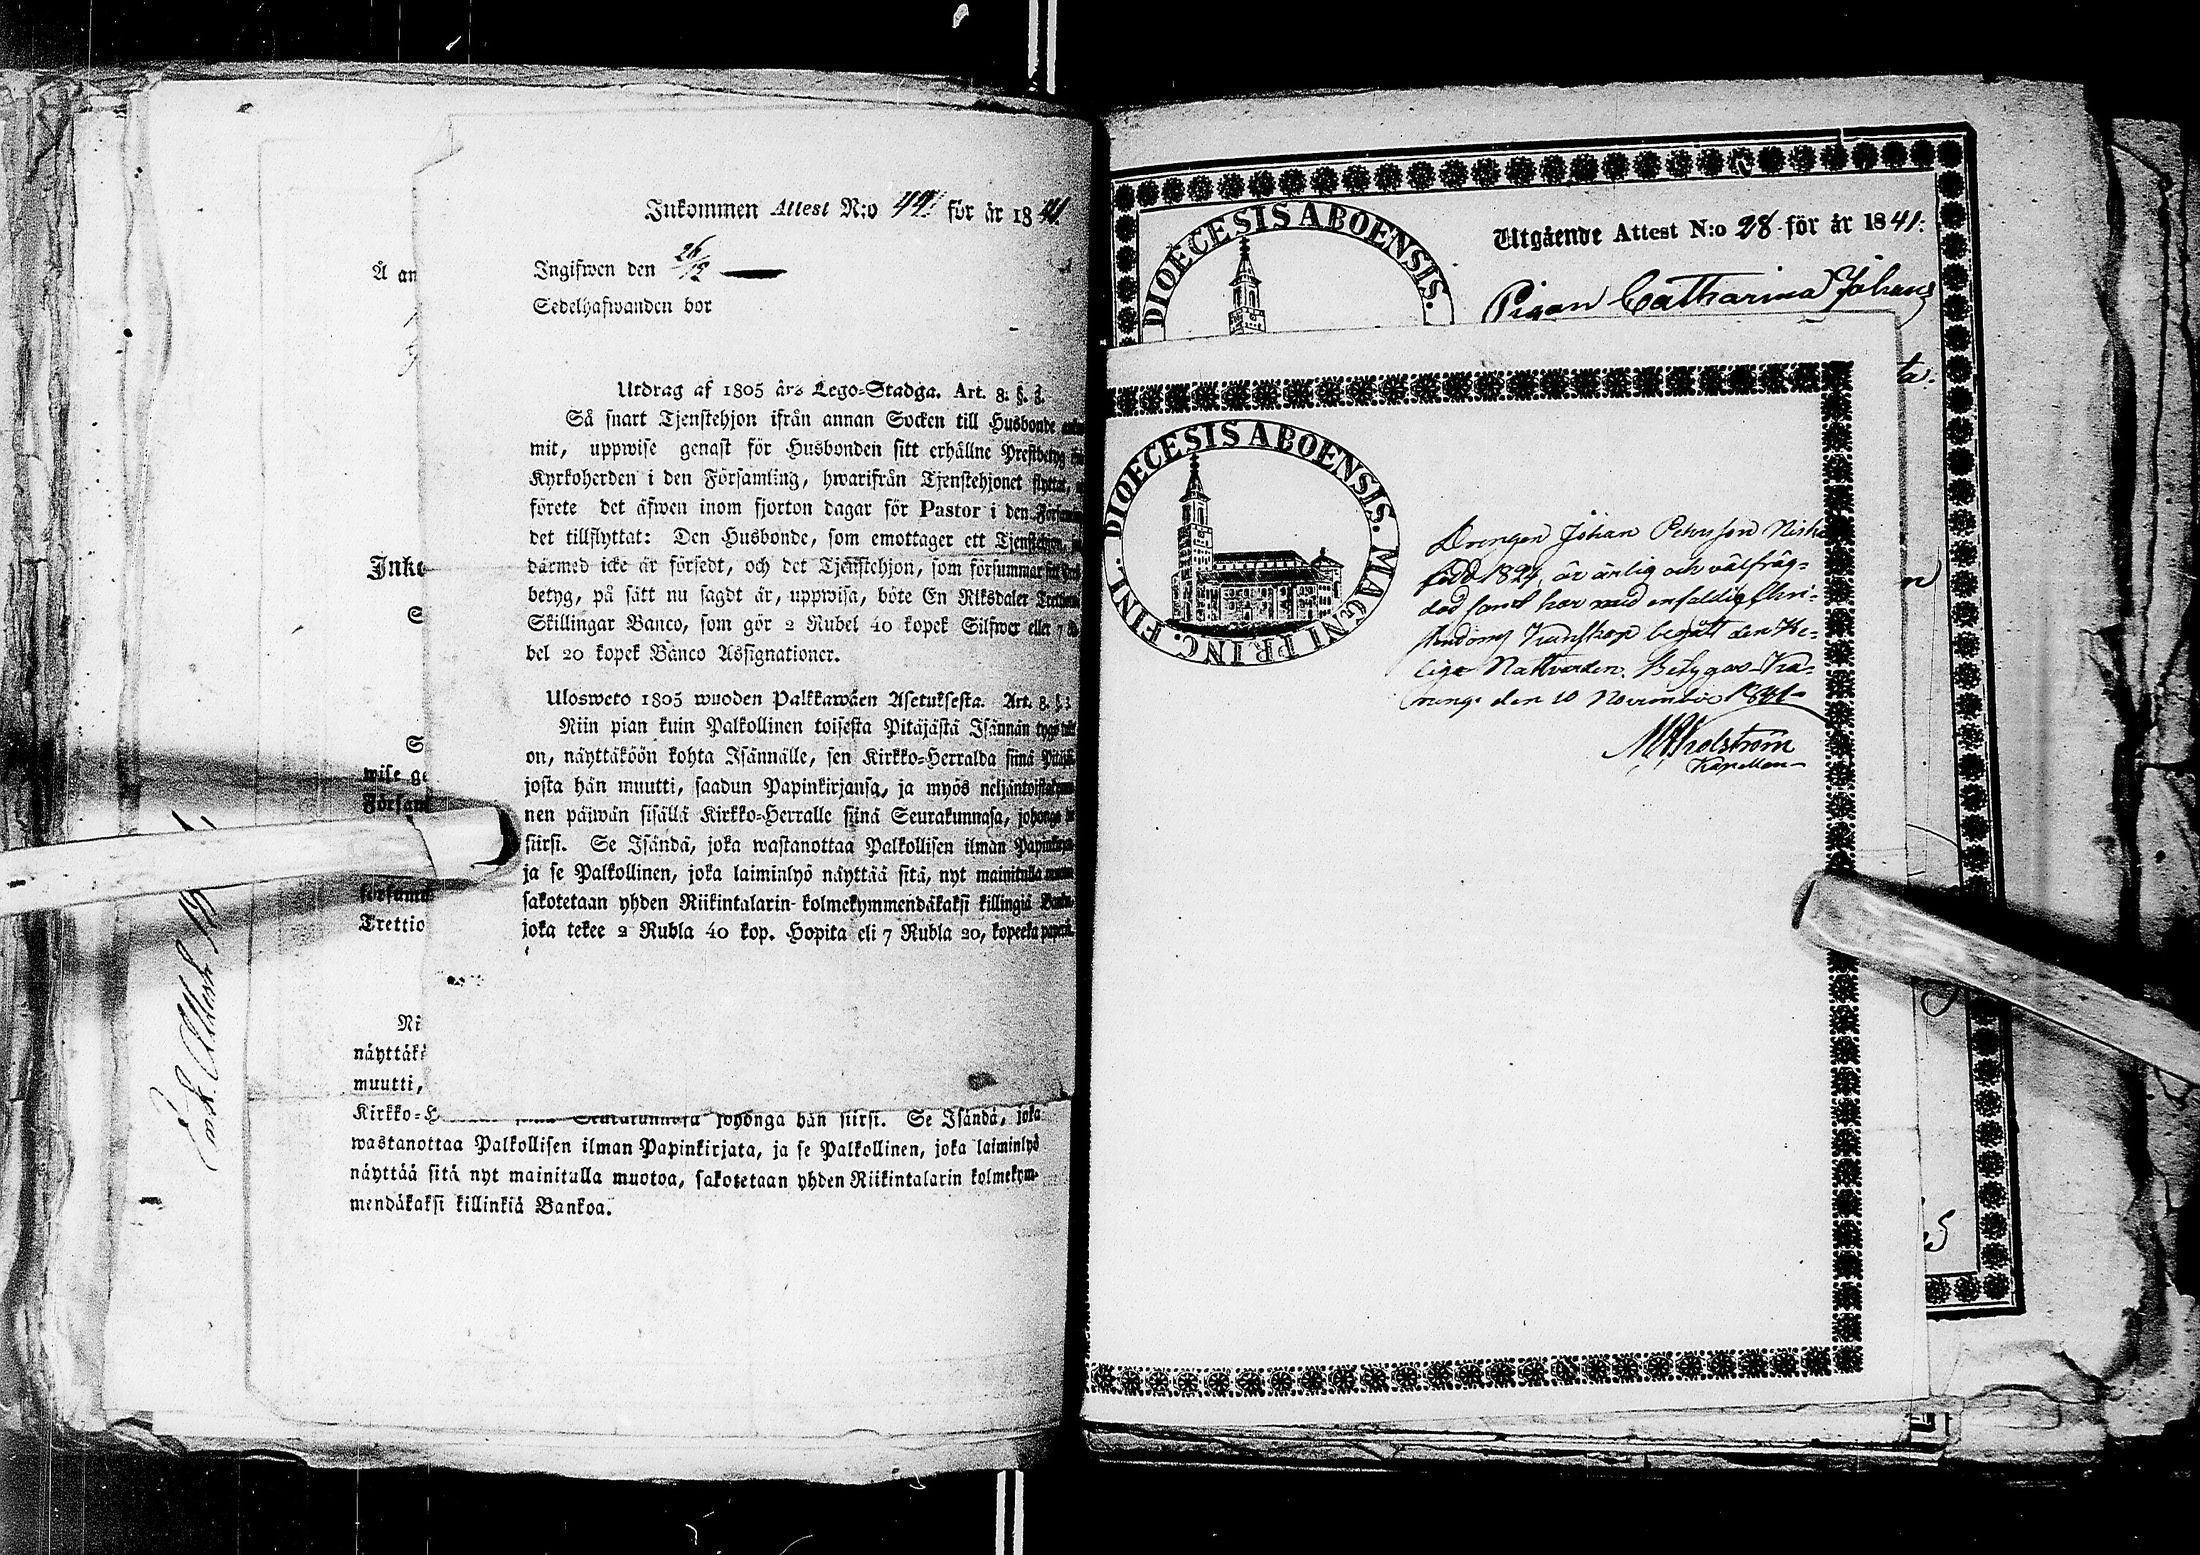 Inkommen Attest N:o 44. för år 1841.
Ingifwen den 26/12
Sedelhafwanden bor
Utdrag af 1805 års Lego-Stadga. Art. 8. §. 3.
Så snart Tjenstehjon ifrån annan Socken till Husbonde
mit, uppwise genast för Husbonden sitt erhållne Prestbetyg
Kyrkoherden i den Församling, hwarifrån Tjenstehjonet flyttat,
förete det äfwen inom fjorton dagar för Pastor i den
det tillflyttat: Den Husbonde, som emottager ett Tjenstehjon,
därmed icke är försedt, och det Tjenstehjon, som försummar
betyg, på sätt nu sagdt är, uppwisa, böte En Riksdaler Trettio
Skillingar Banco, som gör 2 Rubel 40 kopek Silfwer eller 7
bel 20 kopek Banco Assignationer.
Ulosweto 1805 wuoden Palkkawäen Asetuksesta. Art. 8. §. 3
Niin pian kuin Palkollinen toisesta Pitäjästä Isännän tygö
on, näyttäköön kohta Isännälle, sen Kirkko-Herralda siinä
josta hän muutti, saadun Papinkirjansa, ja myös
nen päiwän sisällä Kirkko-Herralle siinä Seurakunnasa, johonga
siirsi. Se Isändä, joka wastanottaa Palkollisen ilman
ja se Palkollinen, joka laiminlyö näyttää sitä, nyt mainitulla
sakotetaan yhden Riikintalarin kolmekymmendäkaksi killingiä
joka tekee 2 Rubla 40 kop. Hopita eli 7 Rubla 20, kopeeka
Å an
Inko
wise ge
Försam
försumm
Trettio
Ni
näyttäkö
muutti,
Kirkko-H Seurakunnasa johonga hän siirsi. Se Isändä, joka
wastanottaa Palkollisen ilman Papinkirjata, ja se Palkollinen, joka laiminlyö
näyttää sitä nyt mainitulla muotoa, sakotetaan yhden Riikintalarin kolmekym-
mendäkaksi killinkiä Bankoa.
Utgående Attest N:o 28 för år 1841.
DIOECESIS ABOENSIS.
Pigan Catharina Johans
ta.
DIOECESIS ABOENSIS. MAGNI PRINC. FINL.
Drengen Johan Petersson
född 1824, är ärlig och välfräg-
dad samt har med enfaldig Chri-
stendoms kunskap begått den He-
liga Nattvarden. Betygas
den 10 November 1841
Kapellan